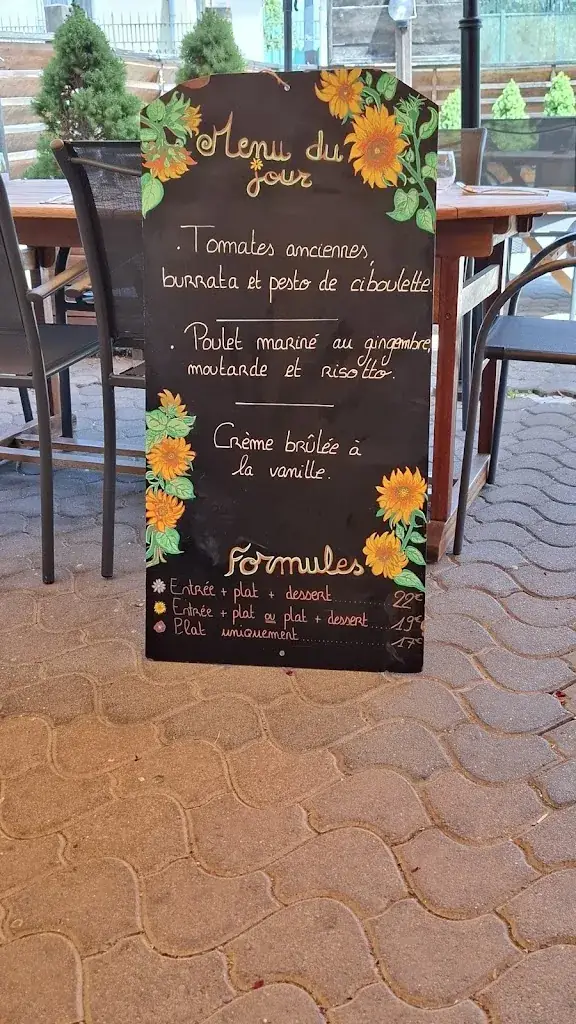 Menu du
jour
. Tomates anciennes,
burrata et pesto de ciboulette.
. Poulet mariné au gingembre,
moutarde et risotto.
Crème brûlée à
la vanille.
Formules
Entrée + plat + dessert......... 22€
Entrée + plat ou plat + dessert.... 19€
Plat uniquement............... 17€